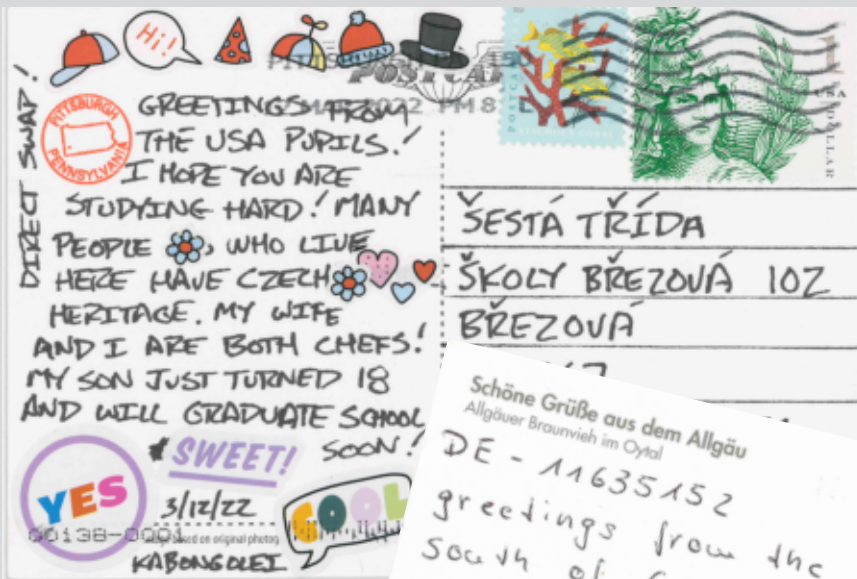 Hi!
POSTCA
2022 PM 8
DIRECT SWAP!
PITTSBURGH
PENNSYLVANIA
GREETINGS FROM
THE USA PUPILS!
I HOPE YOU ARE
STUDYING HARD! MANY
PEOPLE, WHO LIVE
HERE HAVE CZECH
HERITAGE. MY WIFE
AND I ARE BOTH CHEFS!
MY SON JUST TURNED 18
AND WILL GRADUATE SCHOOL
SOON!
SWEET!
YES
3/12/22
COOL
based on original photog
KABONGOLEI
USA
ŠESTÁ TŘÍDA
ŠKOLY BŘEZOVÁ 102
BŘEZOVÁ
Schöne Grüße aus dem Allgäu
Allgäuer Braunvieh im Oytal
DE - 11635152
greetings from the
South of